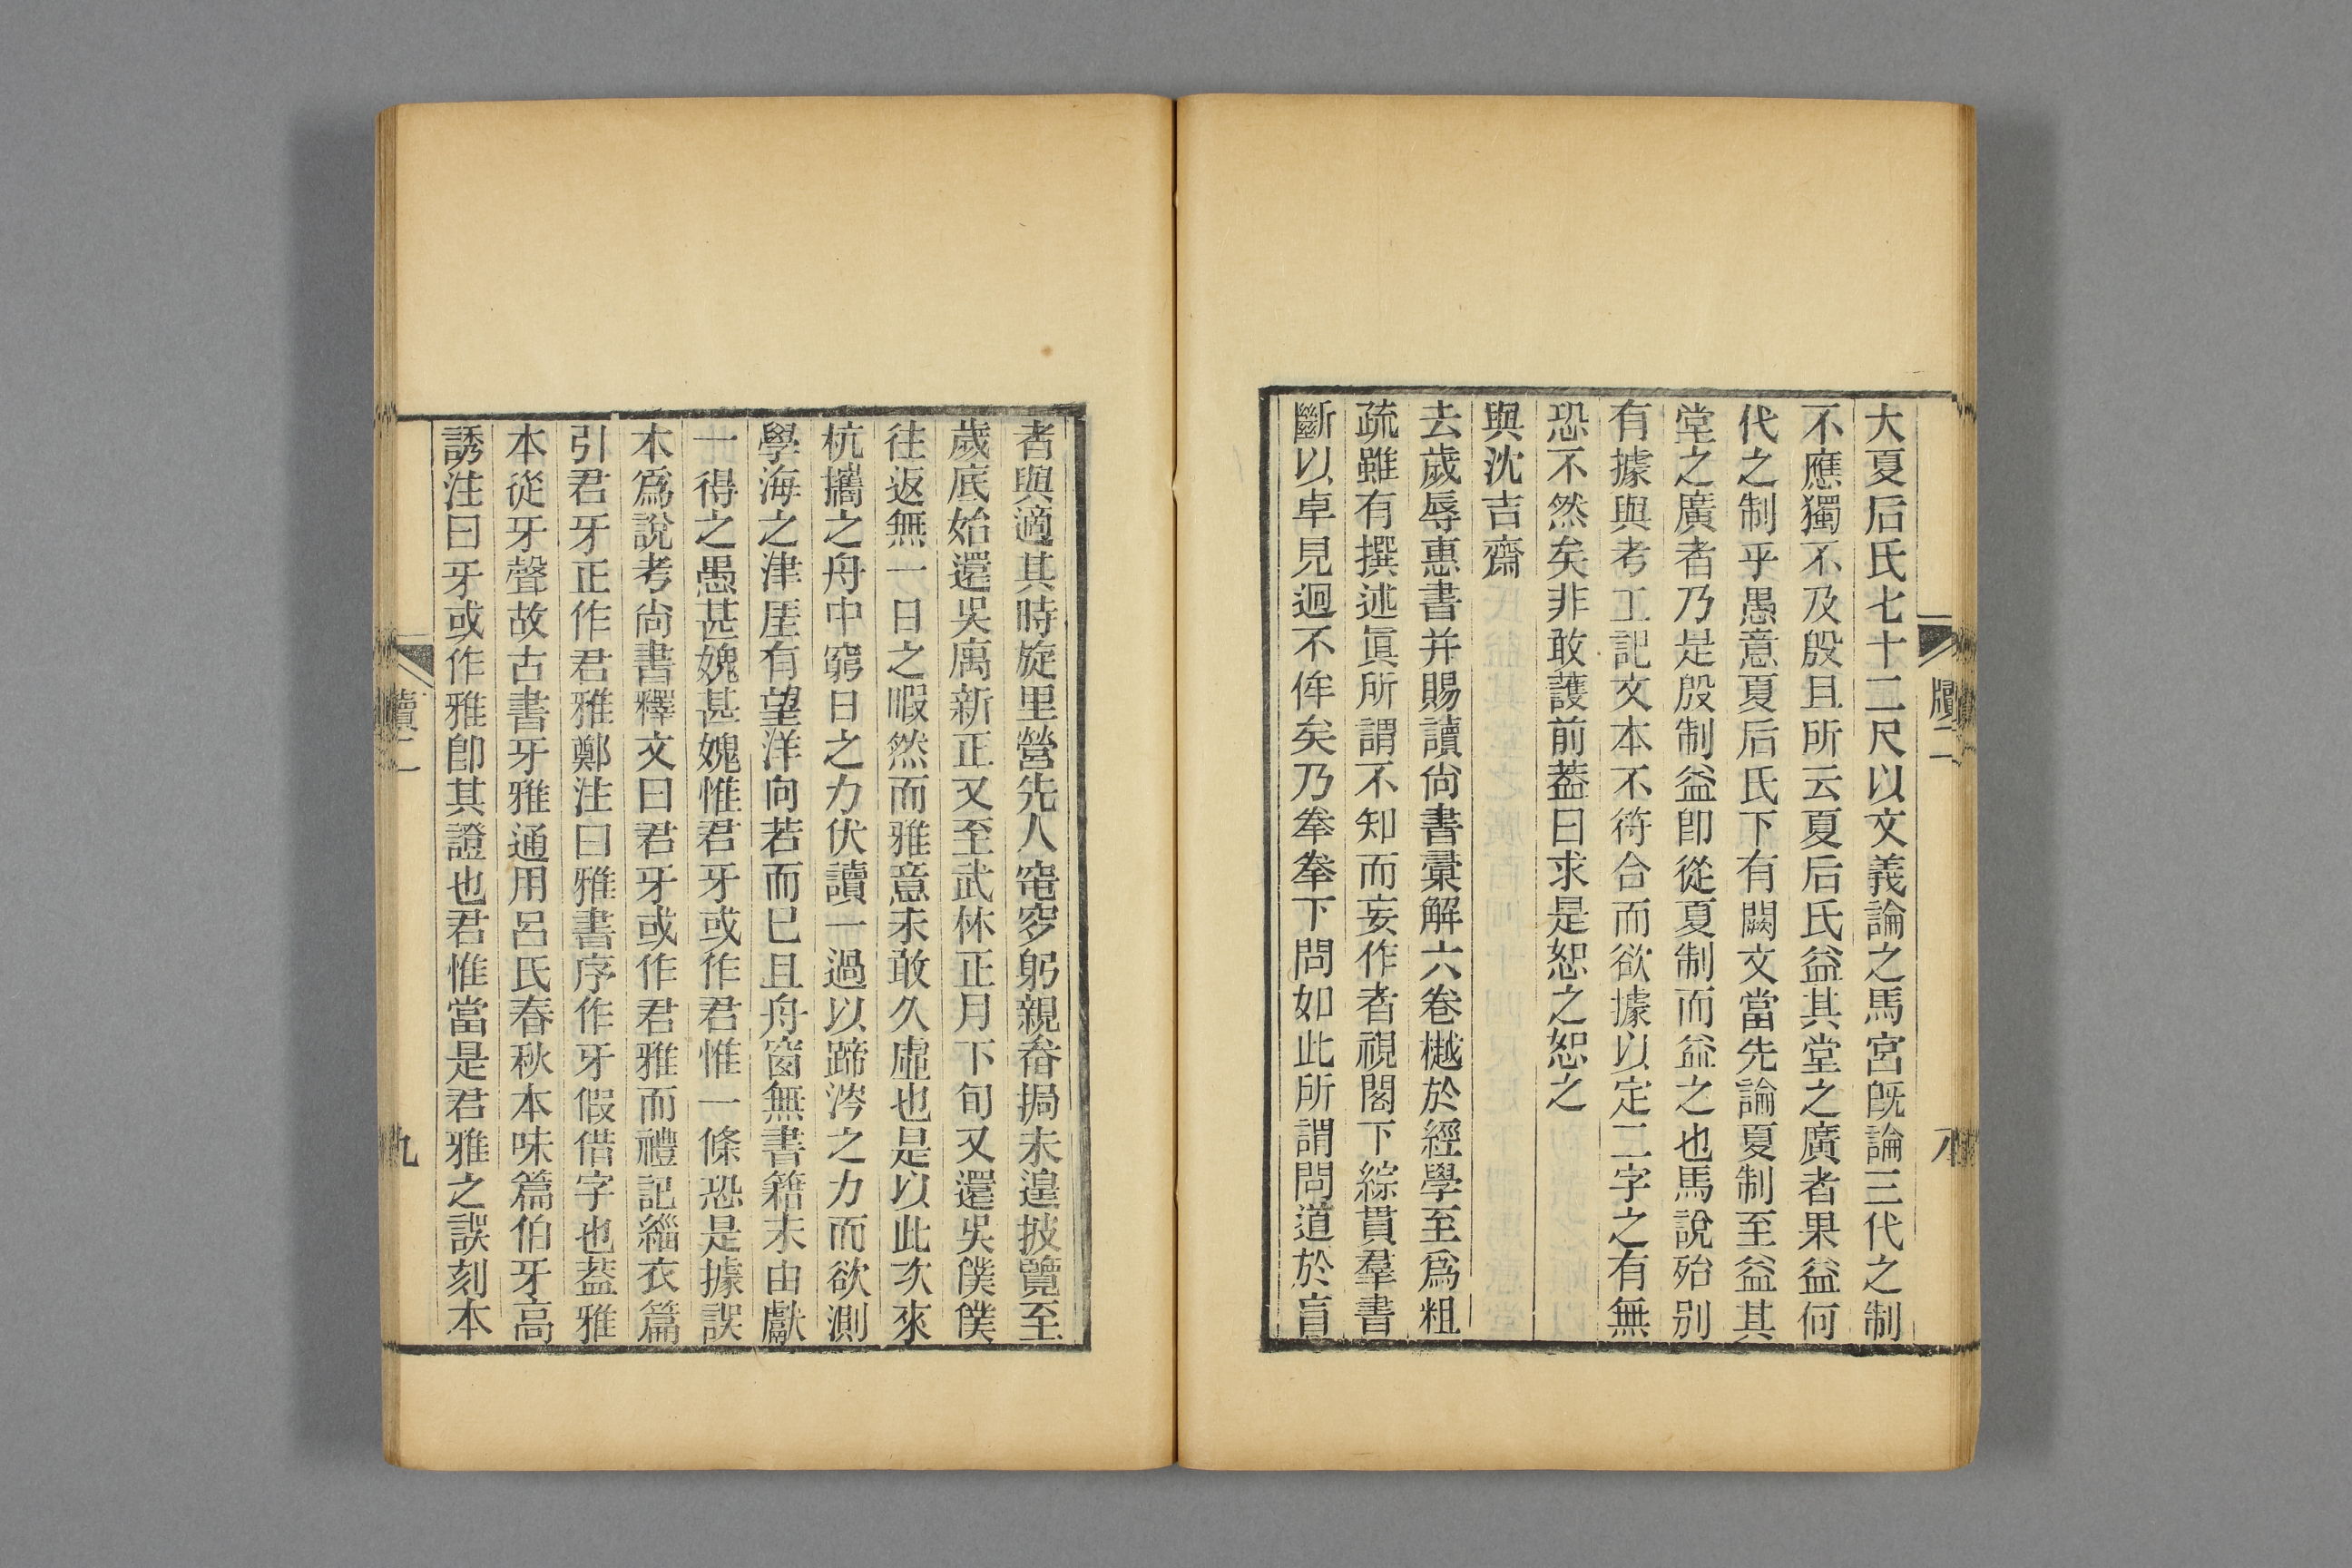 大夏后氏七十二尺以文義論之馬宮旣論三代之制
不應獨不及殷且所云夏后氏益其堂之廣者果益何
代之制乎愚意夏后氏下有闕文當先論夏制至益其
堂之廣者乃是殷制益卽從夏制而益之也馬說殆別
有據與考工記文本不符合而欲據以定二字之有無
恐不然矣非敢護前葢曰求是恕之恕之
與沈吉齋
去歲辱惠書并賜讀尙書彙解六卷樾於經學至爲粗
疏雖有撰述眞所謂不知而妄作者視閣下綜貫羣書
斷以卓見迥不侔矣乃拳拳下問如此所謂問道於盲
牘二
八
者與適其時旋里營先人窀穸躬親畚挶未遑披覽至
歲底始還吳寓新正又至武林正月下旬又還吳僕僕
往返無一日之暇然而雅意未敢久虛也是以此次來
杭攜之舟中窮日之力伏讀一過以蹄涔之力而欲測
學海之津厓有望洋向若而已且舟窗無書籍末由獻
一得之愚甚媿甚媿惟君牙或作君惟一條恐是據誤
本爲說考尙書釋文曰君牙或作君雅而禮記緇衣篇
引君牙正作君雅鄭注曰雅書序作牙假借字也葢雅
本從牙聲故古書牙雅通用呂氏春秋本味篇伯牙高
誘注曰牙或作雅卽其證也君惟當是君雅之誤刻本
牘二
九